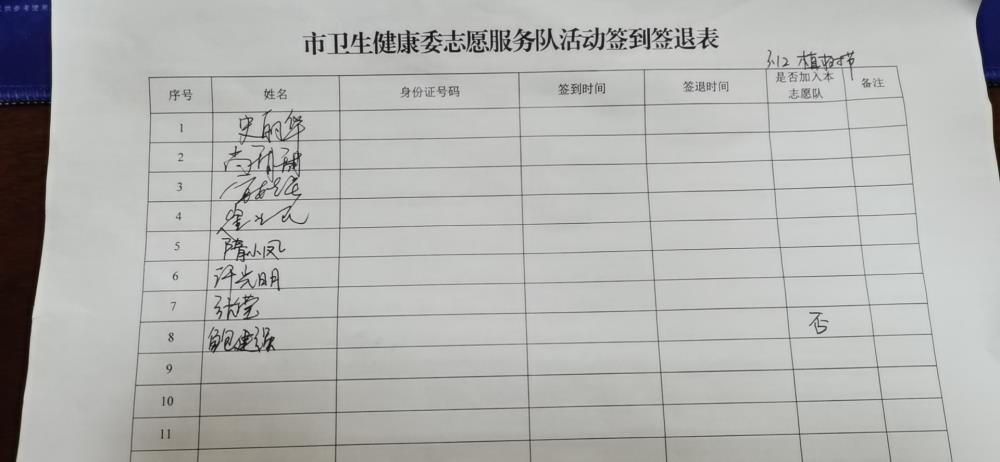 市卫生健康委志愿服务队活动签到签退表
3.12 植树节
序号 姓名 身份证号码 签到时间 签退时间 是否加入本志愿队 备注
1 史丽华
2
3
4
5 隋小凤
6 许光明
7 张莹
8 鲍建强 否
9
10
11